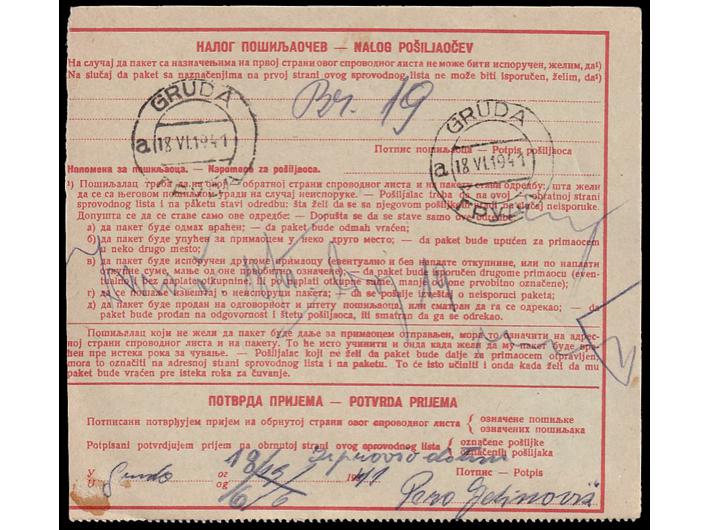 НАЛОГ ПОШИЉАОЧЕВ — NALOG POŠILJAOČEV
На случај да пакет са назначењима на првој страни овог спроводног листа не може бити испоручен, желим, да¹)
Na slučaj da paket sa naznačenjima na prvoj strani ovog sprovodnog lista ne može biti isporučen, želim, da¹)
GRUDA
Br. 19
GRUDA
a 18 VI.1941
a 18 VI.1941
Потпис пошиљаоца — Potpis pošiljaoca
Напомена за пошиљаоца. — Napomena za pošiljaoca.
¹) Пошиљалац треба да на овој обратној страни спроводног листа и на пакету стави одредбу: шта жели
да се са његовом пошиљком уради на случај неиспоруке. — Pošiljalac treba da na ovoj obratnoj strani
sprovodnog lista i na paketu stavi odredbu: šta želi da se sa njegovom pošiljkom uradi na slučaj neisporuke.
Допушта се да се ставе само ове одредбе: — Dopušta se da se stave samo ove odredbe:
а) да пакет буде одмах враћен; — da paket bude odmah vraćen;
б) да пакет буде упућен за примаоцем у неко друго место; — da paket bude upućen za primaocem
u neko drugo mesto;
в) да пакет буде испоручен другоме примаоцу (евентуално и без наплате откупнине, или по наплати
откупне суме, мање од оне првобитно означене); — da paket bude isporučen drugome primaocu (even-
tualno i bez naplate otkupnine, ili po naplati otkupne sume, manje od one prvobitno označene);
г) да се пошаље извештај о неиспоруци пакета; — da se pošalje izveštaj o neisporuci paketa;
д) да пакет буде продан на одговорност и штету пошиљаочеву, или сматран да га се одрекао; — da paket
bude prodan na odgovornost i štetu pošiljaoca, ili smatran da ga se odrekao.
Пошиљалац који не жели да пакет буде даље за примаоцем отправљен, мора то означити на адрес-
ној страни спроводног листа и на пакету. То ће исто учинити и онда када жели да му пакет буде вра-
ћен пре истека рока за чување. — Pošiljalac koji ne želi da paket bude dalje za primaocem otpravljen,
mora to označiti na adresnoj strani sprovodnog lista i na paketu. To će isto učiniti i onda kada želi da mu
paket bude vraćen pre isteka roka za čuvanje.
ПОТВРДА ПРИЈЕМА — POTVRDA PRIJEMA
Потписани потврђујем пријем на обрнутој страни овог спроводног листа { означене пошиљке
означених пошиљака
Potpisani potvrdjujem prijem na obrnutoj strani ovog sprovodnog lista { označene pošiljke
označenih pošiljaka
У
U Gruda ог
og 19 41 Потпис — Potpis
16/6 Pero